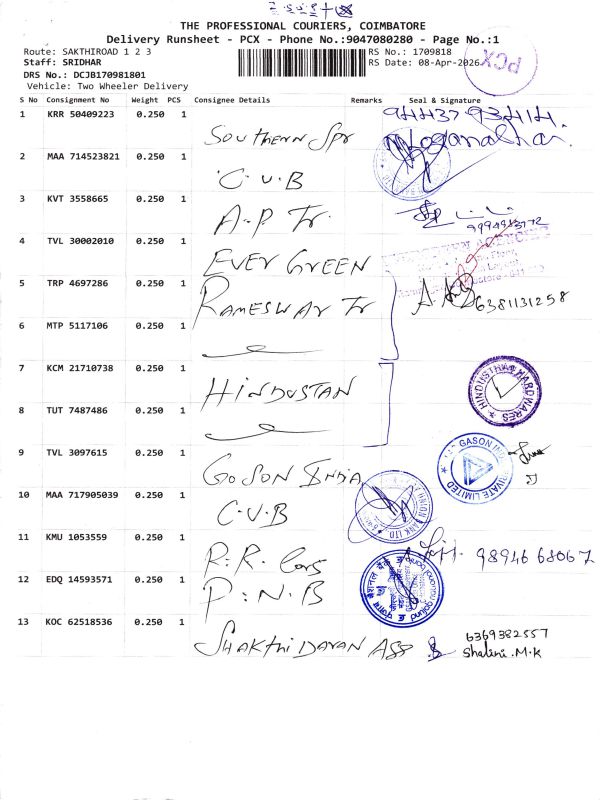 THE PROFESSIONAL COURIERS, COIMBATORE
Delivery Runsheet - PCX - Phone No.:9047080280 - Page No.:1
Route: SAKTHIROAD 1 2 3
RS No.: 1709818
Staff: SRIDHAR
RS Date: 08-Apr-2026
PCX
DRS No.: DCJB170981801
Vehicle: Two Wheeler Delivery
S No Consignment No Weight PCS Consignee Details Remarks Seal & Signature
1 KRR 50409223 0.250 1 SOUTHERN SPR
2 MAA 714523821 0.250 1 C.U.B
3 KVT 3558665 0.250 1 A.P Tr.
4 TVL 30002010 0.250 1 EVER GREEN
5 TRP 4697286 0.250 1 RAMESWAR Tr 6381131258
6 MTP 5117106 0.250 1
7 KCM 21710738 0.250 1 HINDUSTAN HINDUSTHAN HARDWARES
8 TUT 7487486 0.250 1
9 TVL 3097615 0.250 1 GOSON INDIA GASON IN PRIVATE LIMITED
10 MAA 717905039 0.250 1 C.U.B UNION BANK LTD
11 KMU 1053559 0.250 1 R.R. 98946 68067
12 EDQ 14593571 0.250 1 P.N.B punjab national bank
13 KOC 62518536 0.250 1 SHAKTHI DARAN ASS 6369382557
Shalini.M.K